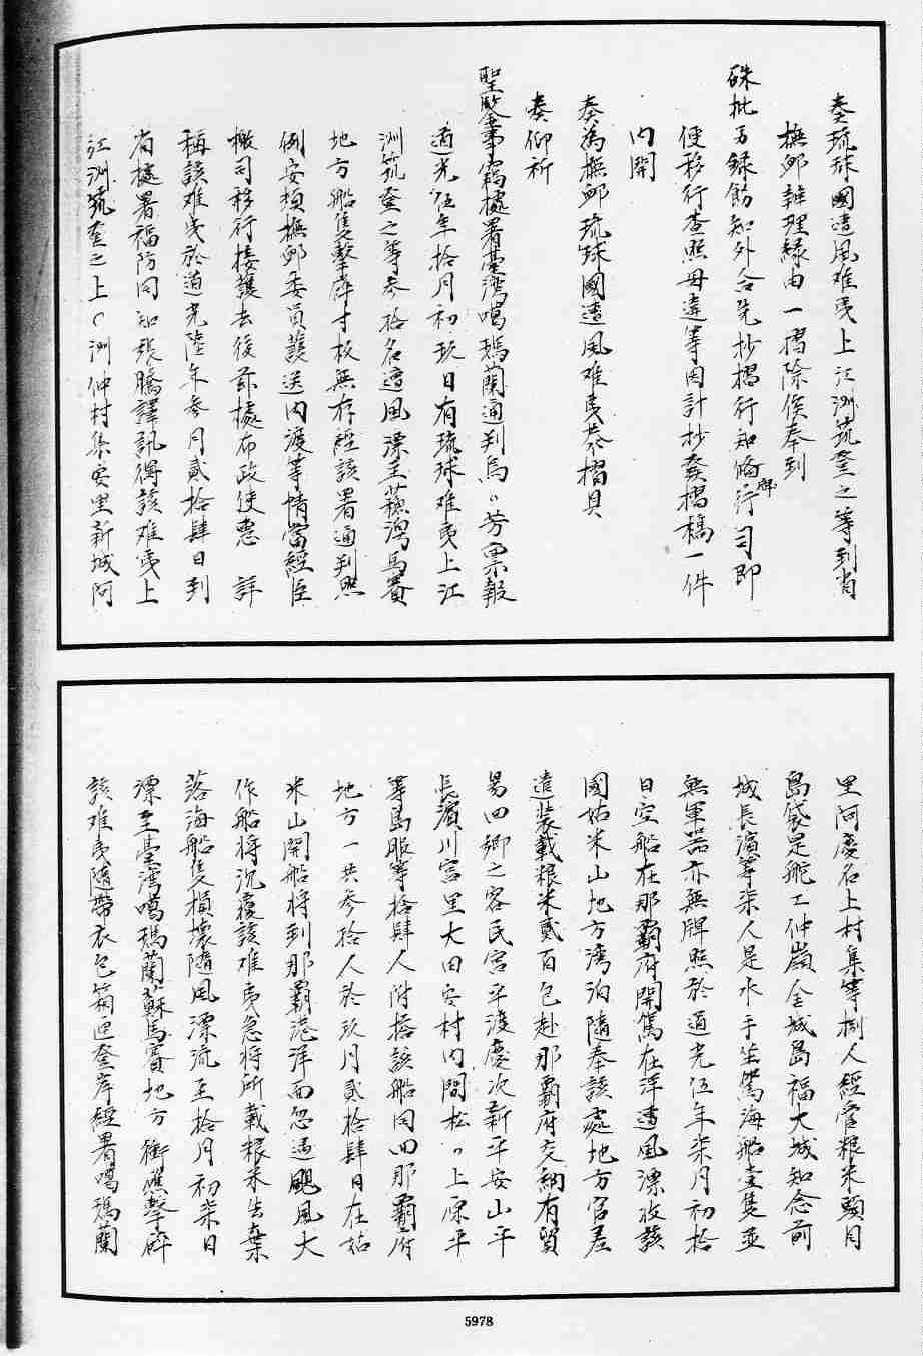 奏琉球國遭風难夷上江洲筑登之等到省
撫卹辦理緣由一摺除俟奉到
硃批另錄飭知外合先抄摺行知備牌行司即
便移行查照毋違等因計抄發摺稿一件
內開
奏為撫卹琉球國遭風难夷恭摺具
奏仰祈
聖鑒事竊據署臺灣噶瑪蘭通判烏〃芳稟報
道光伍年拾月初玖日有琉球难夷上江
洲筑登之等參拾名遭風漂至蘇澚馬賽
地方船隻擊碎寸板無存經該署通判照
例安頓撫卹委員護送內渡等情當經臣
檄司移行接護去後茲據布政使惠 詳
稱該难夷於道光陸年參月貳拾肆日到
省據署福防同知張騰譯訊得該难夷上
江洲筑登之上〃洲仲村集安里新城阿
里阿慶名上村集等捌人經管粮米頭目
島袋是舵工仲嶺金城島福大城知念前
城長濱等柒人是水手坐駕海船壹隻並
無軍器亦無牌照於道光伍年柒月初拾
日空船在那霸府開駕在洋遭風漂收該
國姑米山地方灣泊隨奉該處地方官差
遣裝載粮米貳百包赴那霸府交納有貿
易四鄉之客民宮平渡慶次新平安山平
長濱川宮里大田安村內間松〃上原平
等島服等拾肆人附搭該船同回那霸府
地方一共參拾人於玖月貳拾肆日在姑
米山開船將到那霸港洋面忽遇颶風大
作船將沉覆該难夷急將所載粮米丟棄
落海船隻損壞隨風漂流至拾月初柒日
漂至臺灣噶瑪蘭蘇馬賽地方衝礁擊碎
該难夷隨帶衣包箱迊登岸經署噶瑪蘭
5978